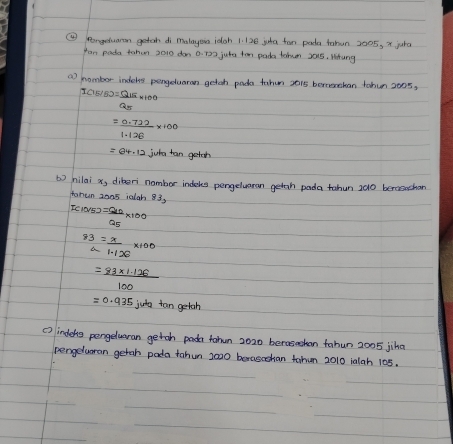 ④ Pengeluaran getah di Malaysia ialah 1.126 juta tan pada tahun 2005, x juta
tan pada tahun 2010 dan 0.722 juta tan pada tahun 2015. Hitung
a) nombor indeks pengeluaran getah pada tahun 2015 berasaskan tahun 2005,
I(15/5) = Q15 x100
Q5
= 0.722 x100
1.126
= 64.12 juta tan getah
b) nilai x, diberi nombor indeks pengeluaran getah pada tahun 2010 berasaskan
tahun 2005 ialah 83,
I(10/5) = Q10 x100
Q5
83 = x x100
1.126
= 83 x 1.126
100
= 0.935 juta tan getah
c) indeks pengeluaran getah pada tahun 2020 berasaskan tahun 2005 jika
pengeluaran getah pada tahun 2020 berasaskan tahun 2010 ialah 105.